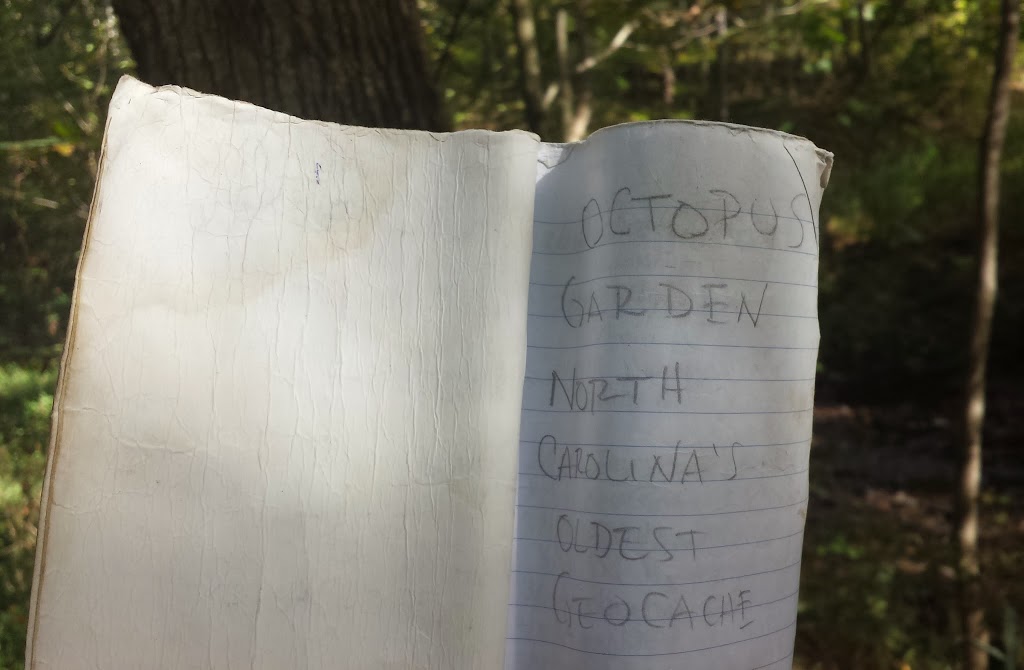 OCTOPUS
GARDEN
NORTH
CAROLINA'S
OLDEST
GEOCACHE